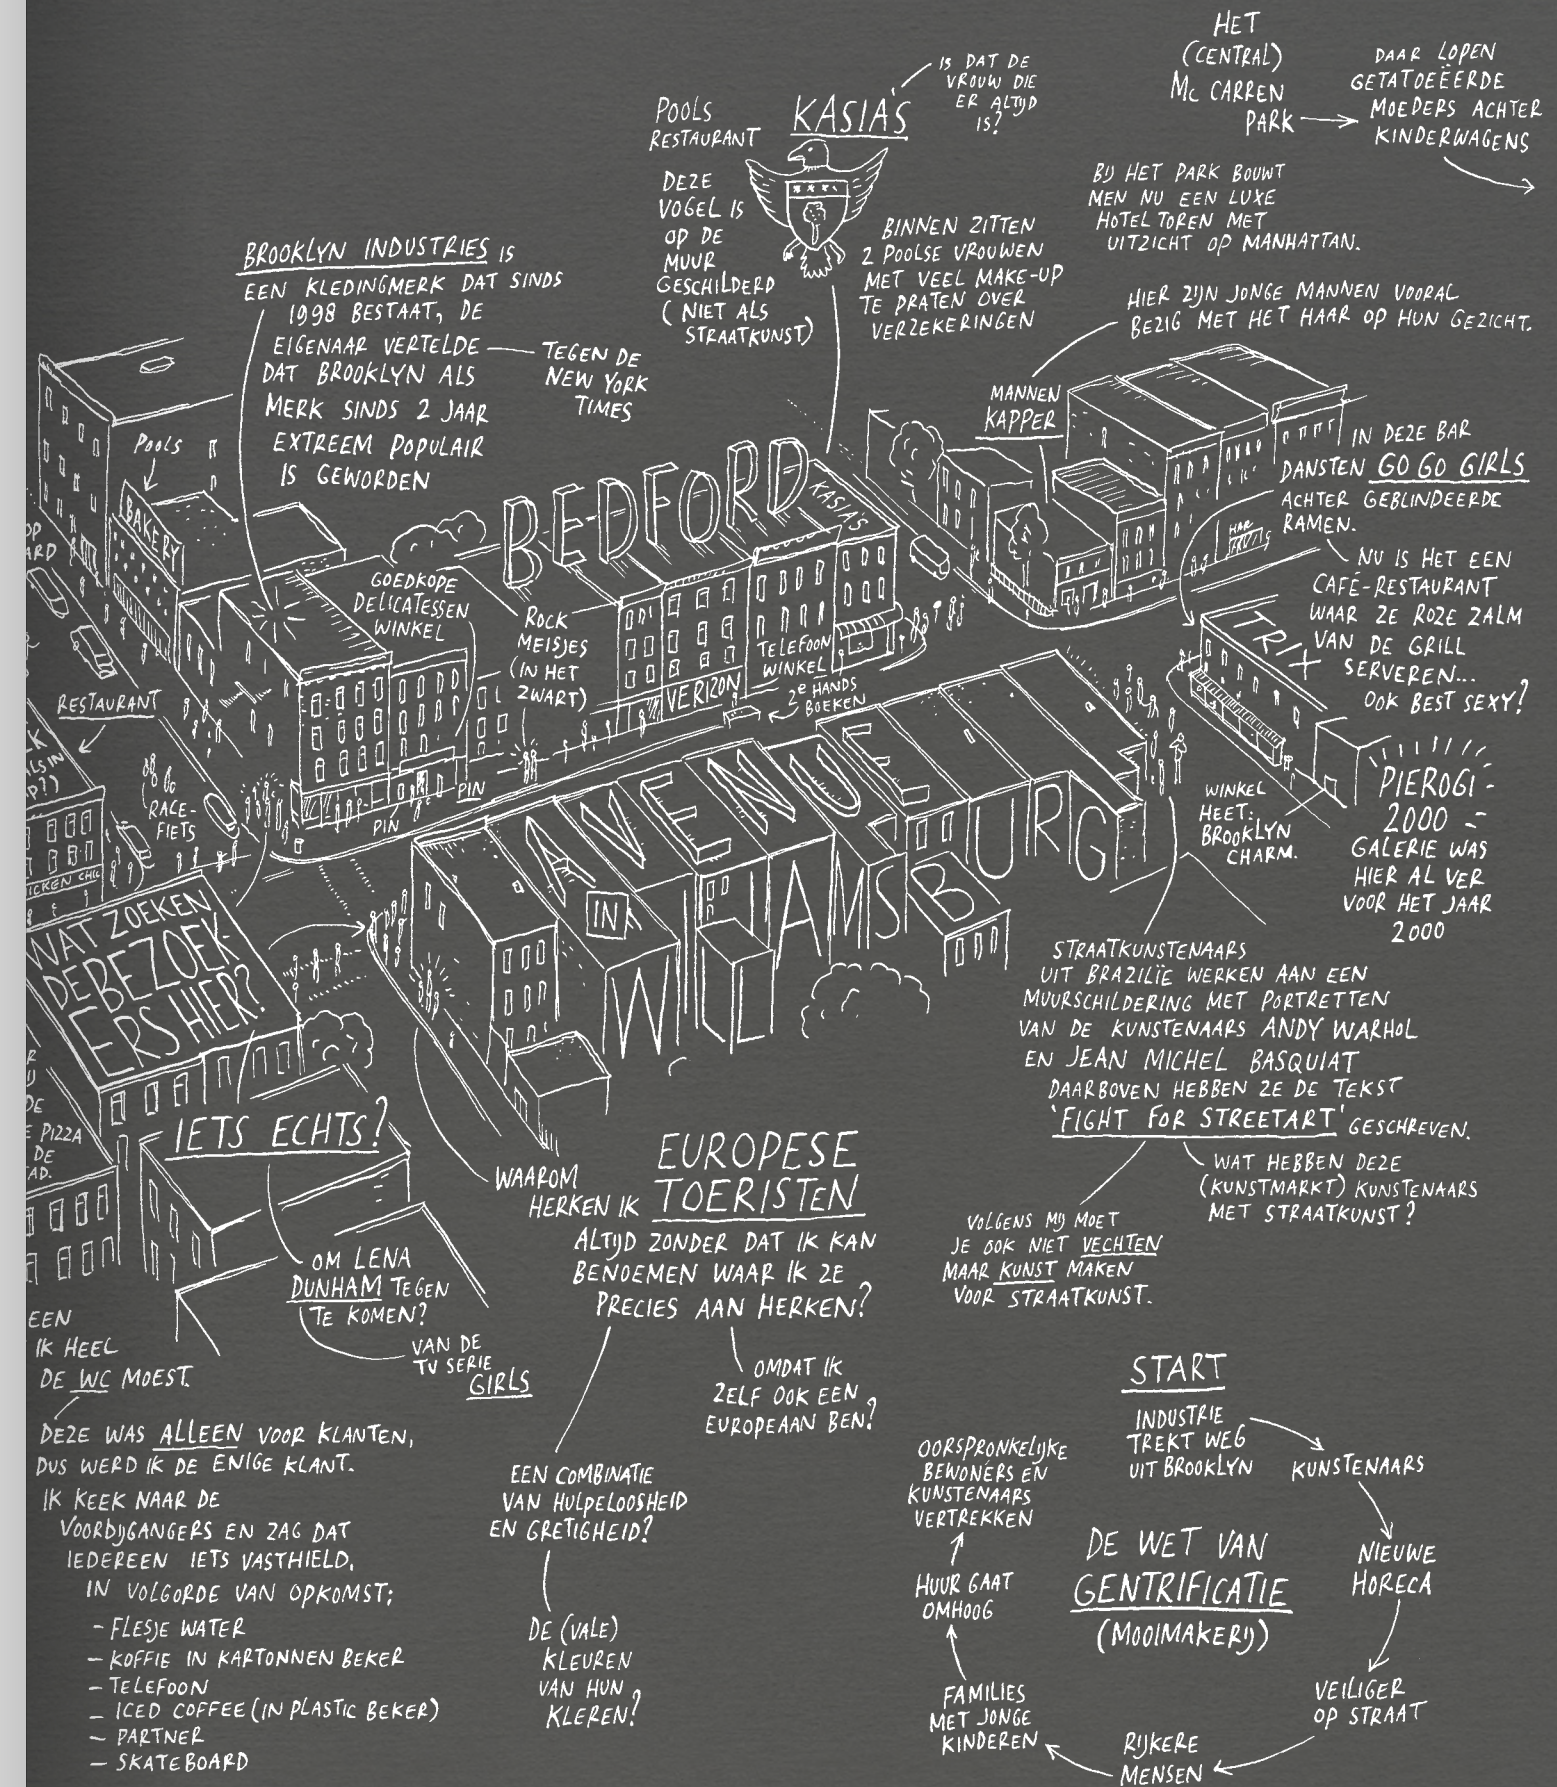 HET
(CENTRAL)
Mc CARREN
PARK
DAAR LOPEN
GETATOEËERDE
MOEDERS ACHTER
KINDERWAGENS
IS DAT DE
VROUW DIE
ER ALTIJD
IS?
POOLS
RESTAURANT
KASIA'S
DEZE
VOGEL IS
OP DE
MUUR
GESCHILDERD
(NIET ALS
STRAATKUNST)
BINNEN ZITTEN
2 POOLSE VROUWEN
MET VEEL MAKE-UP
TE PRATEN OVER
VERZEKERINGEN
BIJ HET PARK BOUWT
MEN NU EEN LUXE
HOTEL TOREN MET
UITZICHT OP MANHATTAN.
HIER ZIJN JONGE MANNEN VOORAL
BEZIG MET HET HAAR OP HUN GEZICHT.
MANNEN
KAPPER
BROOKLYN INDUSTRIES IS
EEN KLEDINGMERK DAT SINDS
1998 BESTAAT, DE
EIGENAAR VERTELDE
DAT BROOKLYN ALS
MERK SINDS 2 JAAR
EXTREEM POPULAIR
IS GEWORDEN
TEGEN DE
NEW YORK
TIMES
POOLS
BAKERY
OP
ARD
BEDFORD
KASIAS
IN DEZE BAR
DANSTEN GO GO GIRLS
ACHTER GEBLINDEERDE
RAMEN.
NU IS HET EEN
CAFÉ-RESTAURANT
WAAR ZE ROZE ZALM
VAN DE GRILL
SERVEREN...
OOK BEST SEXY?
TRIX
GOEDKOPE
DELICATESSEN
WINKEL
ROCK
MEISJES
(IN HET
ZWART)
TELEFOON
WINKEL
VERIZON
2e HANDS
BOEKEN
RESTAURANT
RACE-
FIETS
PIN
PIN
ICKEN CHIC
WINKEL
HEET:
BROOKLYN
CHARM.
PIEROGI-
2000
GALERIE WAS
HIER AL VER
VOOR HET JAAR
2000
AVENUE
IN
WILLIAMSBURG
WAT ZOEKEN
DE BEZOEK-
ERS HIER?
IETS ECHTS?
E PIZZA
DE
AD.
OM LENA
DUNHAM TEGEN
TE KOMEN?
VAN DE
TV SERIE
GIRLS
STRAATKUNSTENAARS
UIT BRAZILIË WERKEN AAN EEN
MUURSCHILDERING MET PORTRETTEN
VAN DE KUNSTENAARS ANDY WARHOL
EN JEAN MICHEL BASQUIAT
DAARBOVEN HEBBEN ZE DE TEKST
'FIGHT FOR STREETART' GESCHREVEN.
WAT HEBBEN DEZE
(KUNSTMARKT) KUNSTENAARS
MET STRAATKUNST?
VOLGENS MIJ MOET
JE OOK NIET VECHTEN
MAAR KUNST MAKEN
VOOR STRAATKUNST.
WAAROM
HERKEN IK
EUROPESE
TOERISTEN
ALTIJD ZONDER DAT IK KAN
BENOEMEN WAAR IK ZE
PRECIES AAN HERKEN?
OMDAT IK
ZELF OOK EEN
EUROPEAAN BEN?
EEN COMBINATIE
VAN HULPELOOSHEID
EN GRETIGHEID?
DE (VALE)
KLEUREN
VAN HUN
KLEREN?
EEN
IK HEEL
DE WC MOEST.
DEZE WAS ALLEEN VOOR KLANTEN,
DUS WERD IK DE ENIGE KLANT.
IK KEEK NAAR DE
VOORBIJGANGERS EN ZAG DAT
IEDEREEN IETS VASTHIELD.
IN VOLGORDE VAN OPKOMST:
- FLESJE WATER
- KOFFIE IN KARTONNEN BEKER
- TELEFOON
- ICED COFFEE (IN PLASTIC BEKER)
- PARTNER
- SKATEBOARD
START
INDUSTRIE
TREKT WEG
UIT BROOKLYN
KUNSTENAARS
NIEUWE
HORECA
VEILIGER
OP STRAAT
RIJKERE
MENSEN
FAMILIES
MET JONGE
KINDEREN
HUUR GAAT
OMHOOG
OORSPRONKELIJKE
BEWONERS EN
KUNSTENAARS
VERTREKKEN
DE WET VAN
GENTRIFICATIE
(MOOIMAKERIJ)